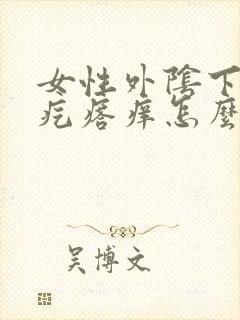 女性外陰下
疙瘩痒怎麼
吴博文